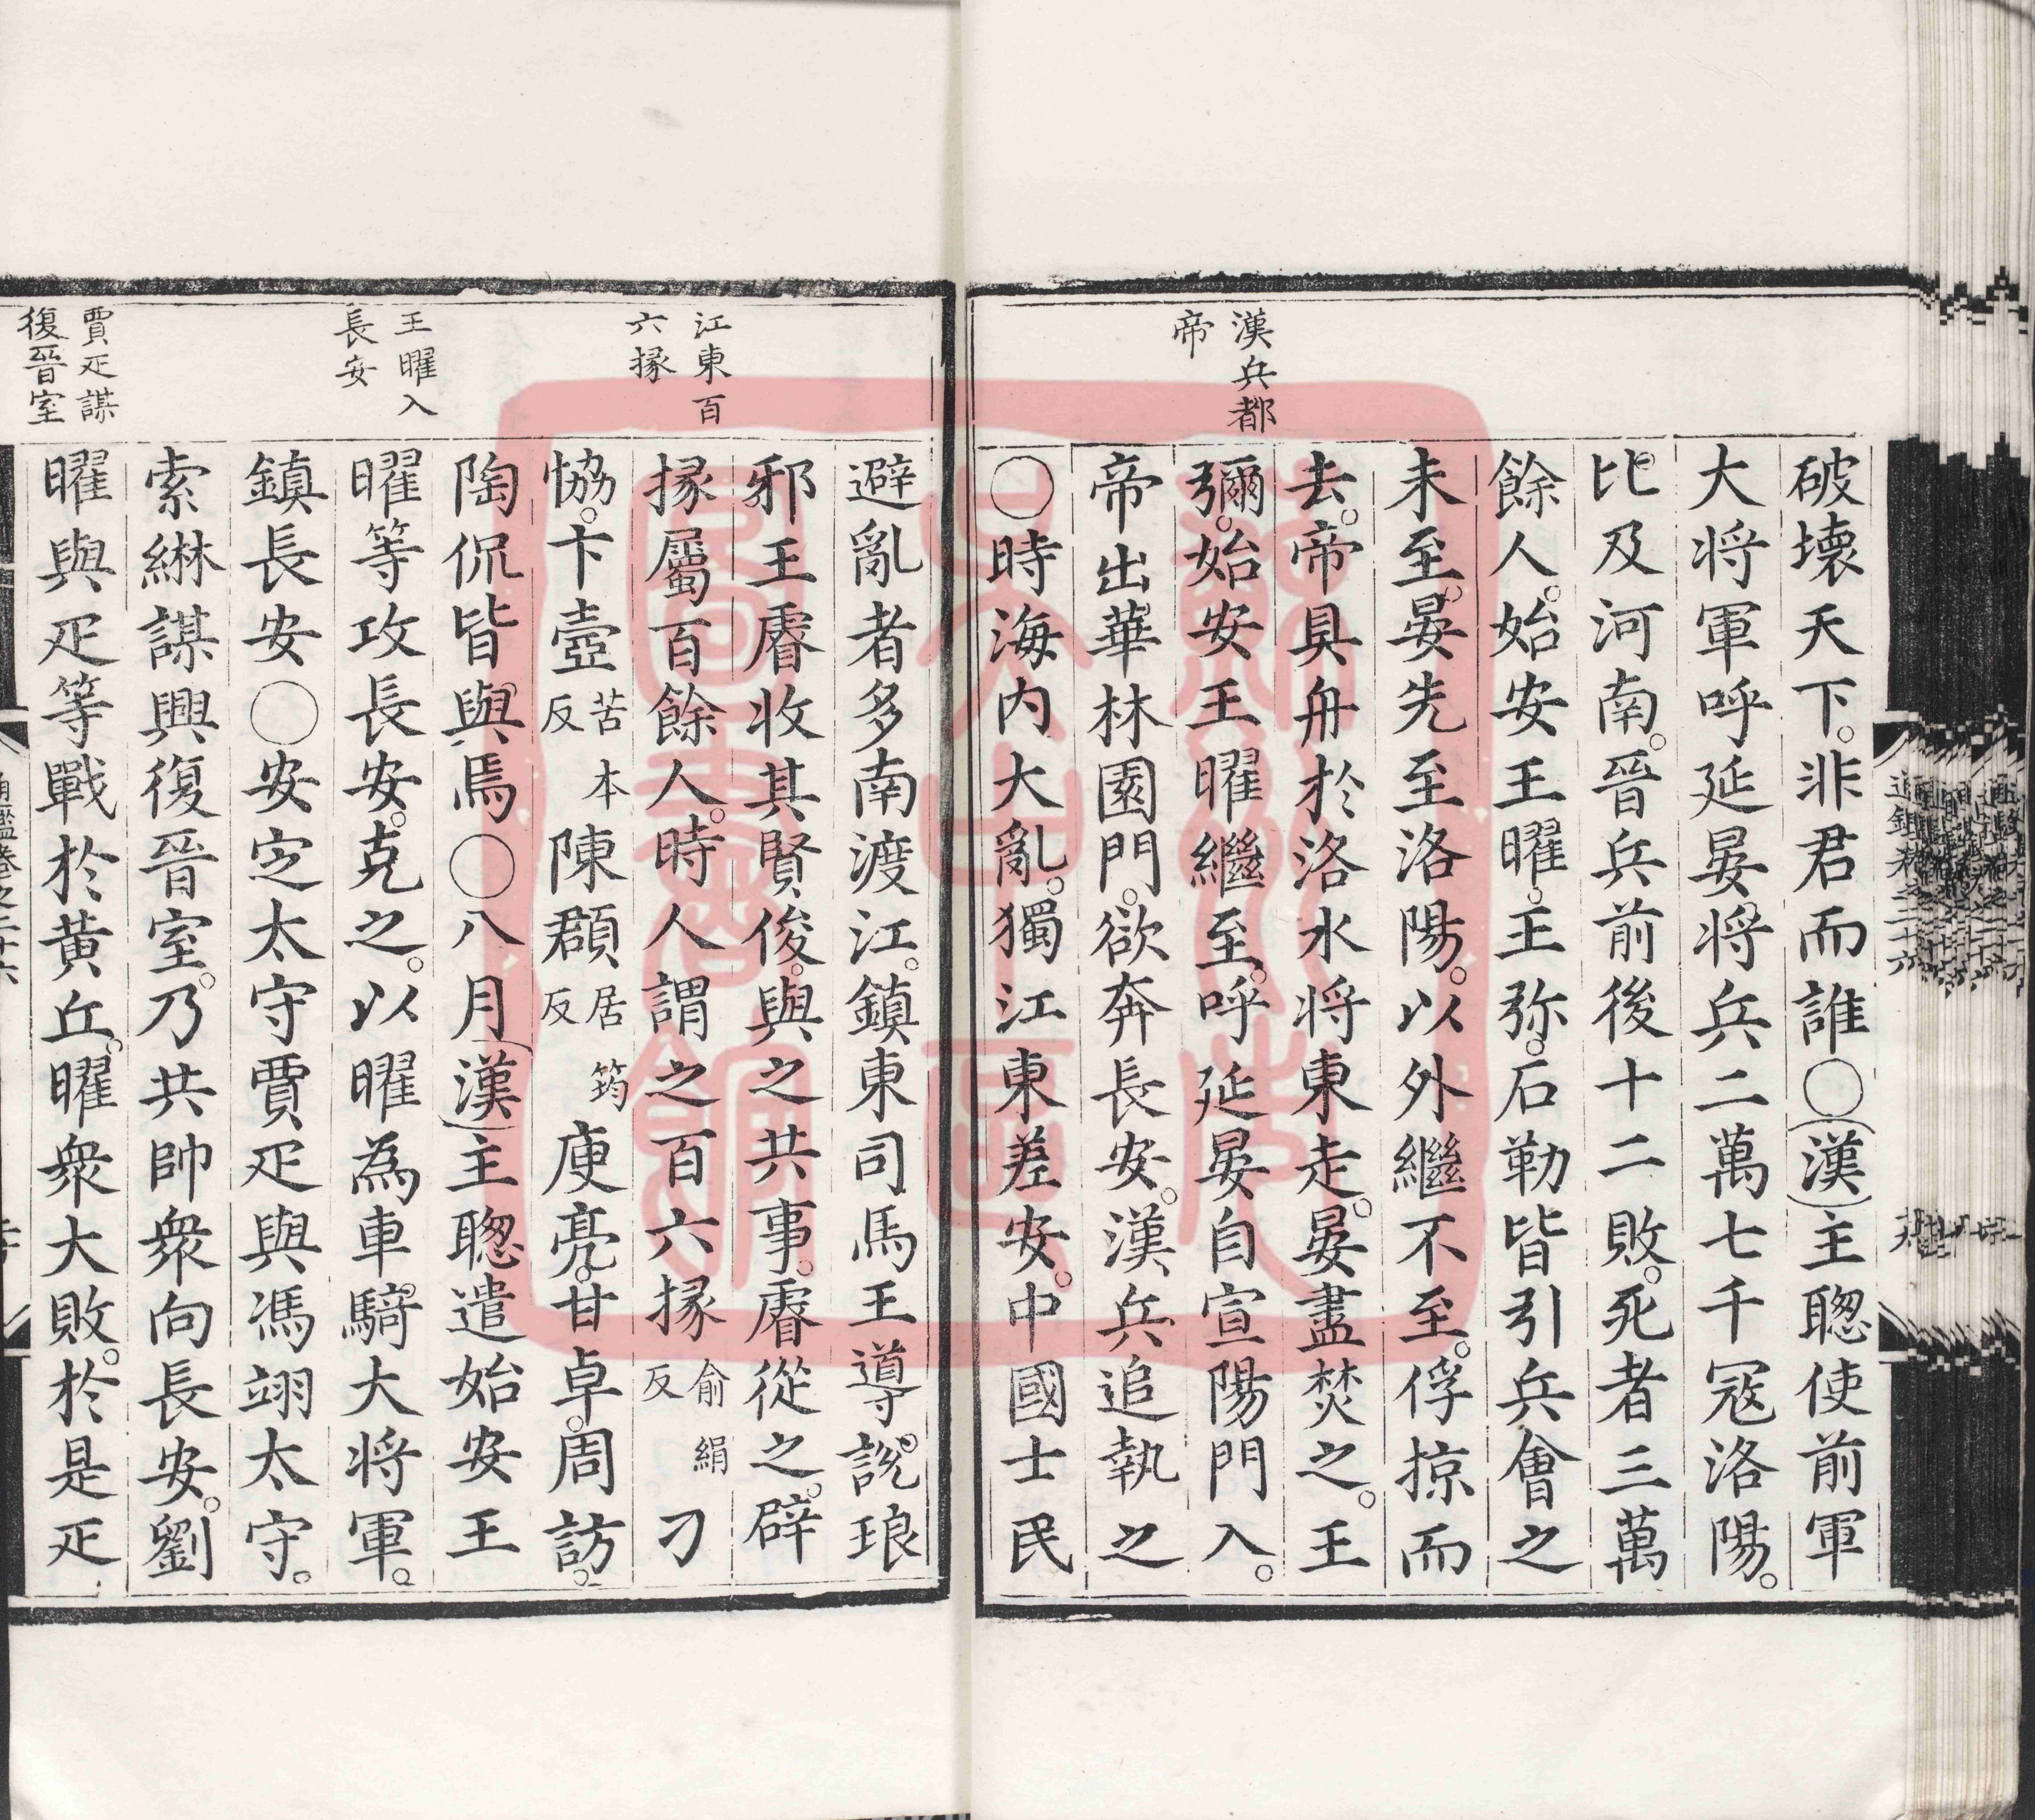 漢兵都
帝
破壊天下。非君而誰〇漢主聦使前軍
大将軍呼延晏将兵二萬七千冦洛陽。
比及河南。晉兵前後十二敗。死者三萬
餘人。始安王曜。王弥。石勒皆引兵會之
未至。晏先至洛陽。以外繼不至。俘掠而
去。帝具舟於洛水将東走。晏盡焚之。王
彌。始安王曜繼至。呼延晏自宣陽門入。
帝出華林園門。欲奔長安。漢兵追執之
〇時海内大亂。獨江東差安。中國士民
江東百
六掾
王曜入
長安
賈疋謀
復晉室
避亂者多南渡江。鎮東司馬王導。說琅
邪王睿收其賢俊。與之共事。睿從之。辟
掾屬百餘人。時人謂之百六掾俞絹反刁
恊。卞壼苦本反陳頵居筠反庾亮。甘卓。周訪。
陶侃皆與焉〇八月漢主聦遣始安王
曜等攻長安。克之。以曜為車騎大将軍。
鎮長安〇安定太守賈疋與馮翊太守。
索綝謀興復晉室。乃共帥衆向長安。劉
曜與疋等戰於黄丘。曜衆大敗。於是疋